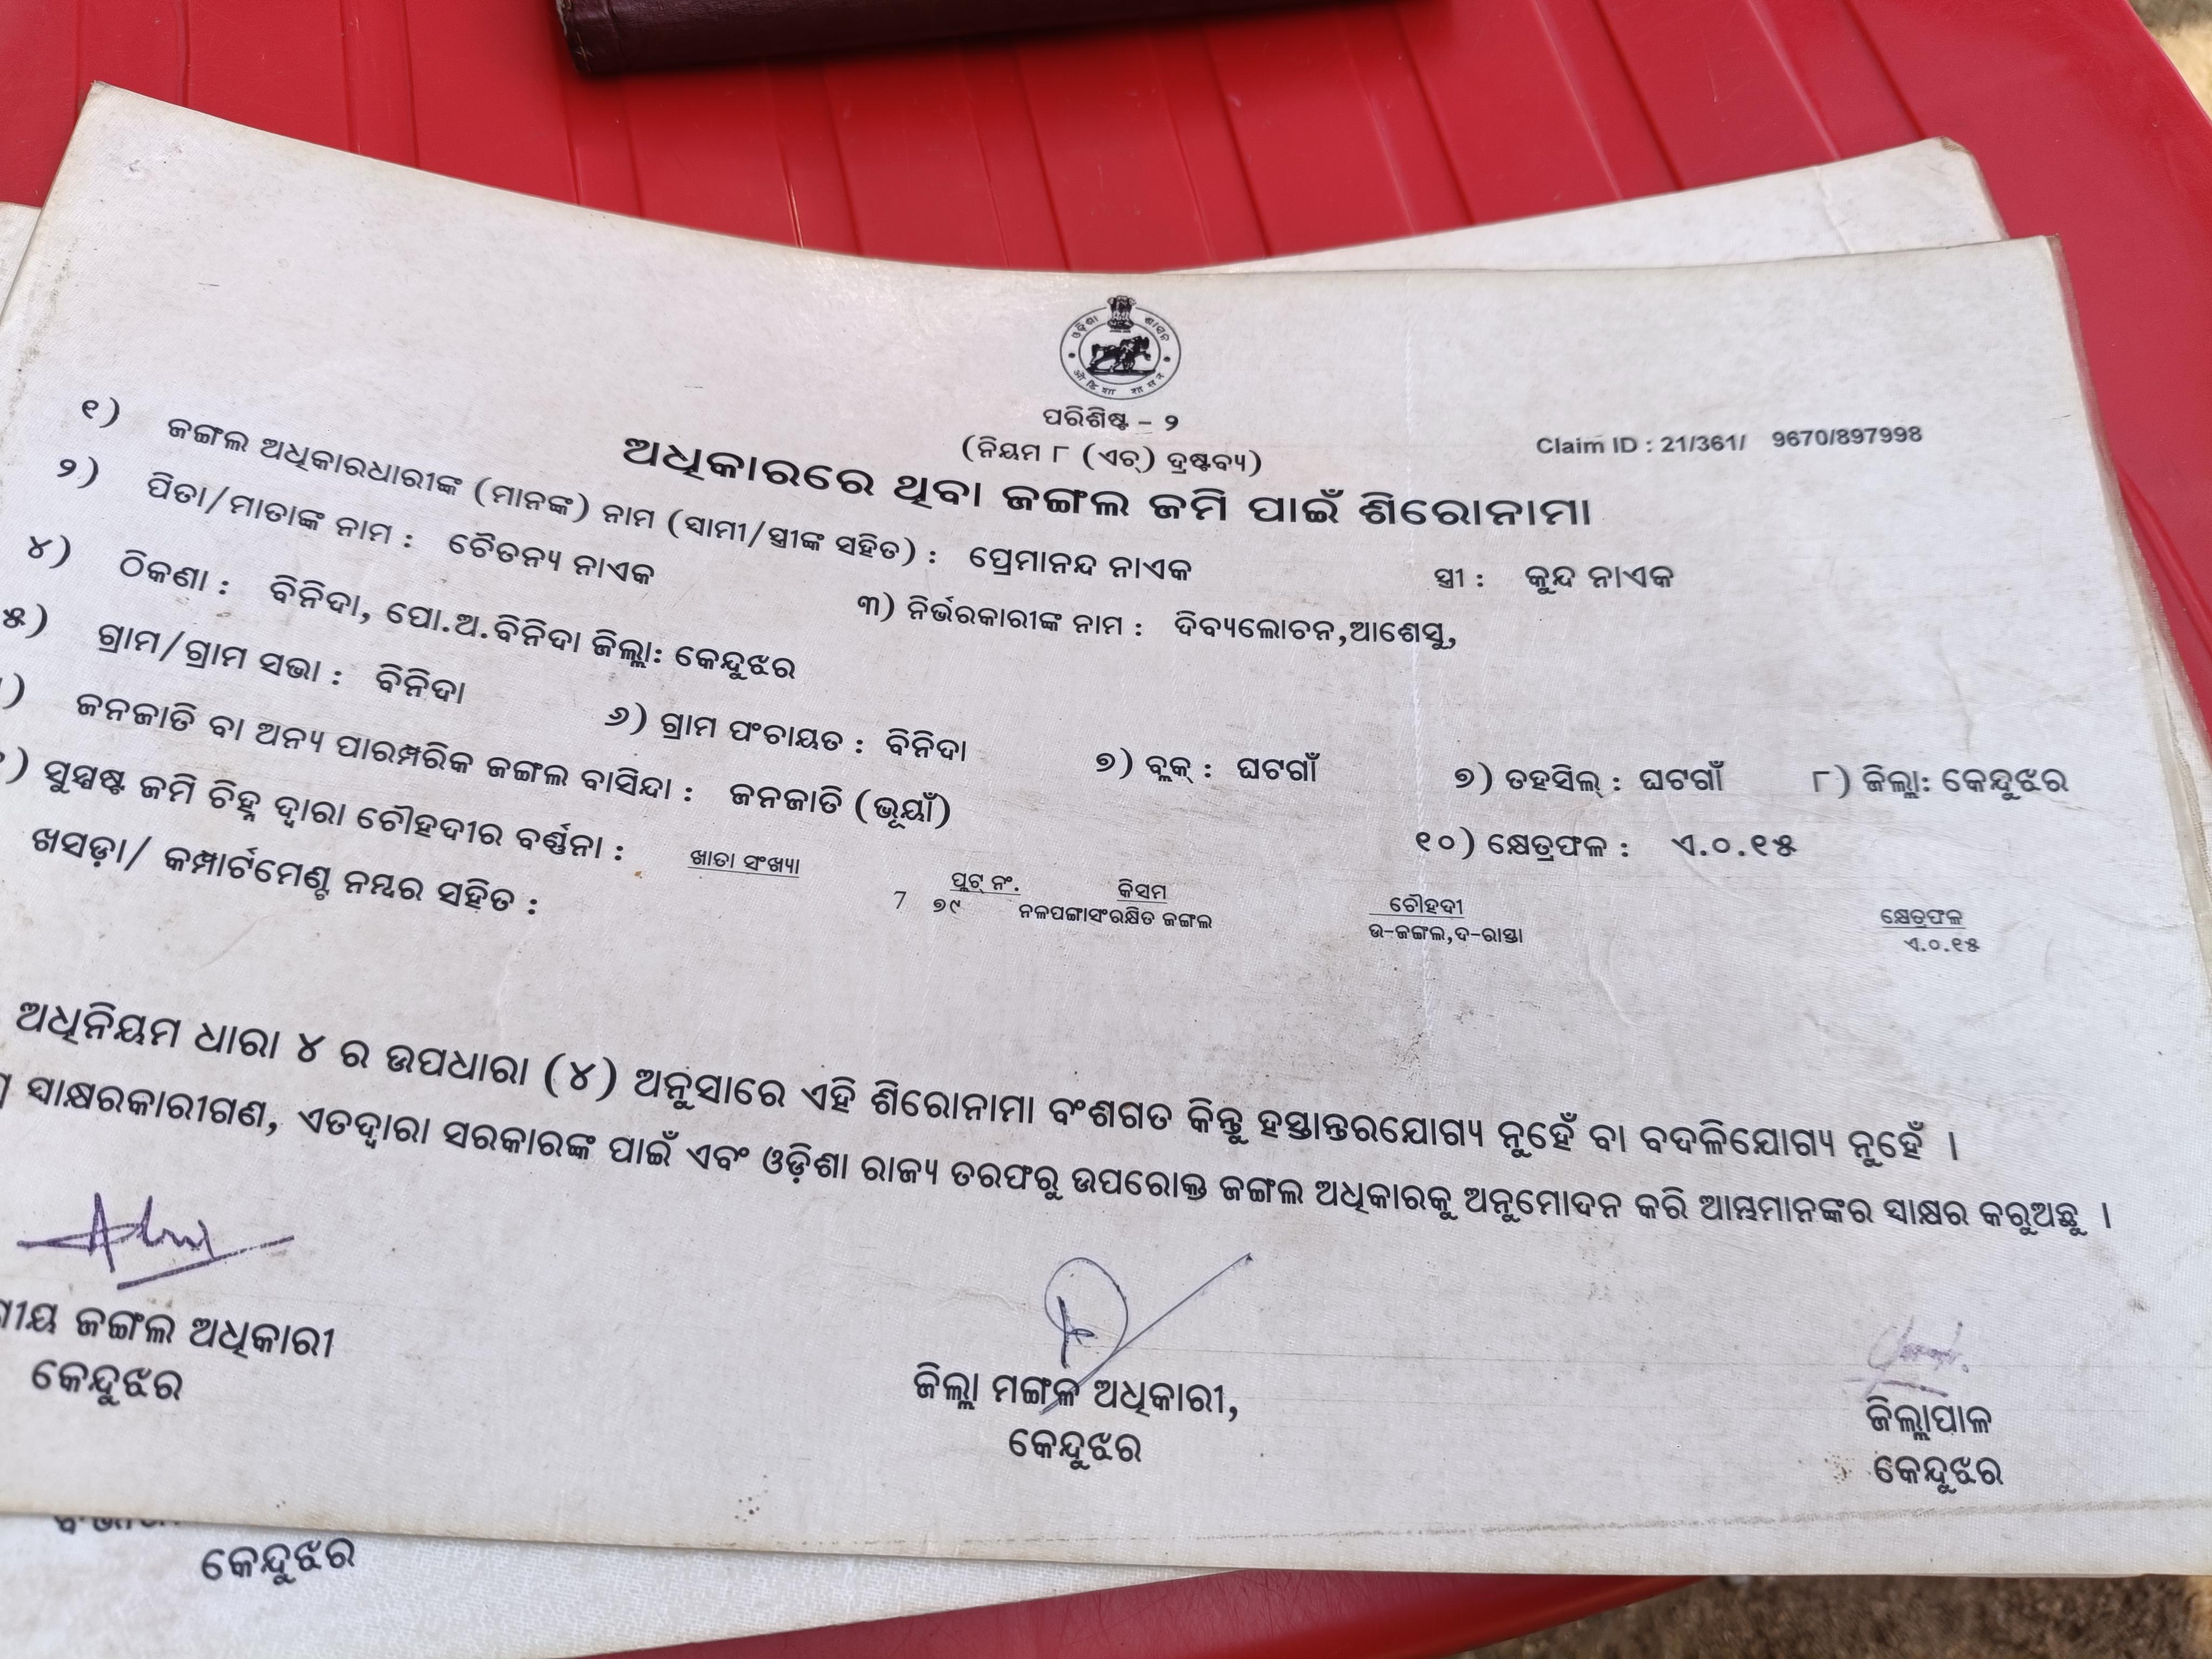 ଓଡ଼ିଶା ଶାସନ
ओडिशा शासन
ପରିଶିଷ୍ଟ - ୨
(ନିୟମ ୮ (ଏଚ୍) ଦ୍ରଷ୍ଟବ୍ୟ)
Claim ID : 21/361/ 9670/897998
ଅଧିକାରରେ ଥିବା ଜଙ୍ଗଲ ଜମି ପାଇଁ ଶିରୋନାମା
୧) ଜଙ୍ଗଲ ଅଧିକାରଧାରୀଙ୍କ (ମାନଙ୍କ) ନାମ (ସ୍ଵାମୀ/ସ୍ତ୍ରୀଙ୍କ ସହିତ) : ପ୍ରେମାନନ୍ଦ ନାଏକ ସ୍ତ୍ରୀ : କୁନ୍ଦ ନାଏକ
୨) ପିତା/ମାତାଙ୍କ ନାମ : ଚୈତନ୍ୟ ନାଏକ ୩) ନିର୍ଭରକାରୀଙ୍କ ନାମ : ଦିବ୍ୟଲୋଚନ,ଆଶେସୁ,
୪) ଠିକଣା : ବିନିଦା, ପୋ.ଅ.ବିନିଦା ଜିଲ୍ଲା: କେନ୍ଦୁଝର
୫) ଗ୍ରାମ/ଗ୍ରାମ ସଭା : ବିନିଦା ୬) ଗ୍ରାମ ପଂଚାୟତ : ବିନିଦା ୭) ବ୍ଲକ୍ : ଘଟଗାଁ ୭) ତହସିଲ୍ : ଘଟଗାଁ ୮) ଜିଲ୍ଲା: କେନ୍ଦୁଝର
) ଜନଜାତି ବା ଅନ୍ୟ ପାରମ୍ପରିକ ଜଙ୍ଗଲ ବାସିନ୍ଦା : ଜନଜାତି (ଭୂୟାଁ) ୧୦) କ୍ଷେତ୍ରଫଳ : ଏ.୦.୧୫
) ସୁସ୍ପଷ୍ଟ ଜମି ଚିହ୍ନ ଦ୍ୱାରା ଚୌହଦୀର ବର୍ଣ୍ଣନା : ଖାତା ସଂଖ୍ୟା ପ୍ଲଟ୍ ନଂ. କିସମ ଚୌହଦୀ କ୍ଷେତ୍ରଫଳ
ଖସଡ଼ା/ କମ୍ପାର୍ଟମେଣ୍ଟ ନମ୍ବର ସହିତ : 7 ୭୯ ନଳପଙ୍ଗାସଂରକ୍ଷିତ ଜଙ୍ଗଲ ଉ-ଜଙ୍ଗଲ,ଦ-ରାସ୍ତା ଏ.୦.୧୫
ଅଧିନିୟମ ଧାରା ୪ ର ଉପଧାରା (୪) ଅନୁସାରେ ଏହି ଶିରୋନାମା ବଂଶଗତ କିନ୍ତୁ ହସ୍ତାନ୍ତରଯୋଗ୍ୟ ନୁହେଁ ବା ବଦଳିଯୋଗ୍ୟ ନୁହେଁ ।
ସ୍ୱାକ୍ଷରକାରୀଗଣ, ଏତଦ୍ଦ୍ୱାରା ସରକାରଙ୍କ ପାଇଁ ଏବଂ ଓଡ଼ିଶା ରାଜ୍ୟ ତରଫରୁ ଉପରୋକ୍ତ ଜଙ୍ଗଲ ଅଧିକାରକୁ ଅନୁମୋଦନ କରି ଆମ୍ଭମାନଙ୍କର ସ୍ୱାକ୍ଷର କରୁଅଛୁ ।
ଜଙ୍ଗଲ ଅଧିକାରୀ
କେନ୍ଦୁଝର
ଜିଲ୍ଲା ମଙ୍ଗଳ ଅଧିକାରୀ,
କେନ୍ଦୁଝର
ଜିଲ୍ଲାପାଳ
କେନ୍ଦୁଝର
କେନ୍ଦୁଝର